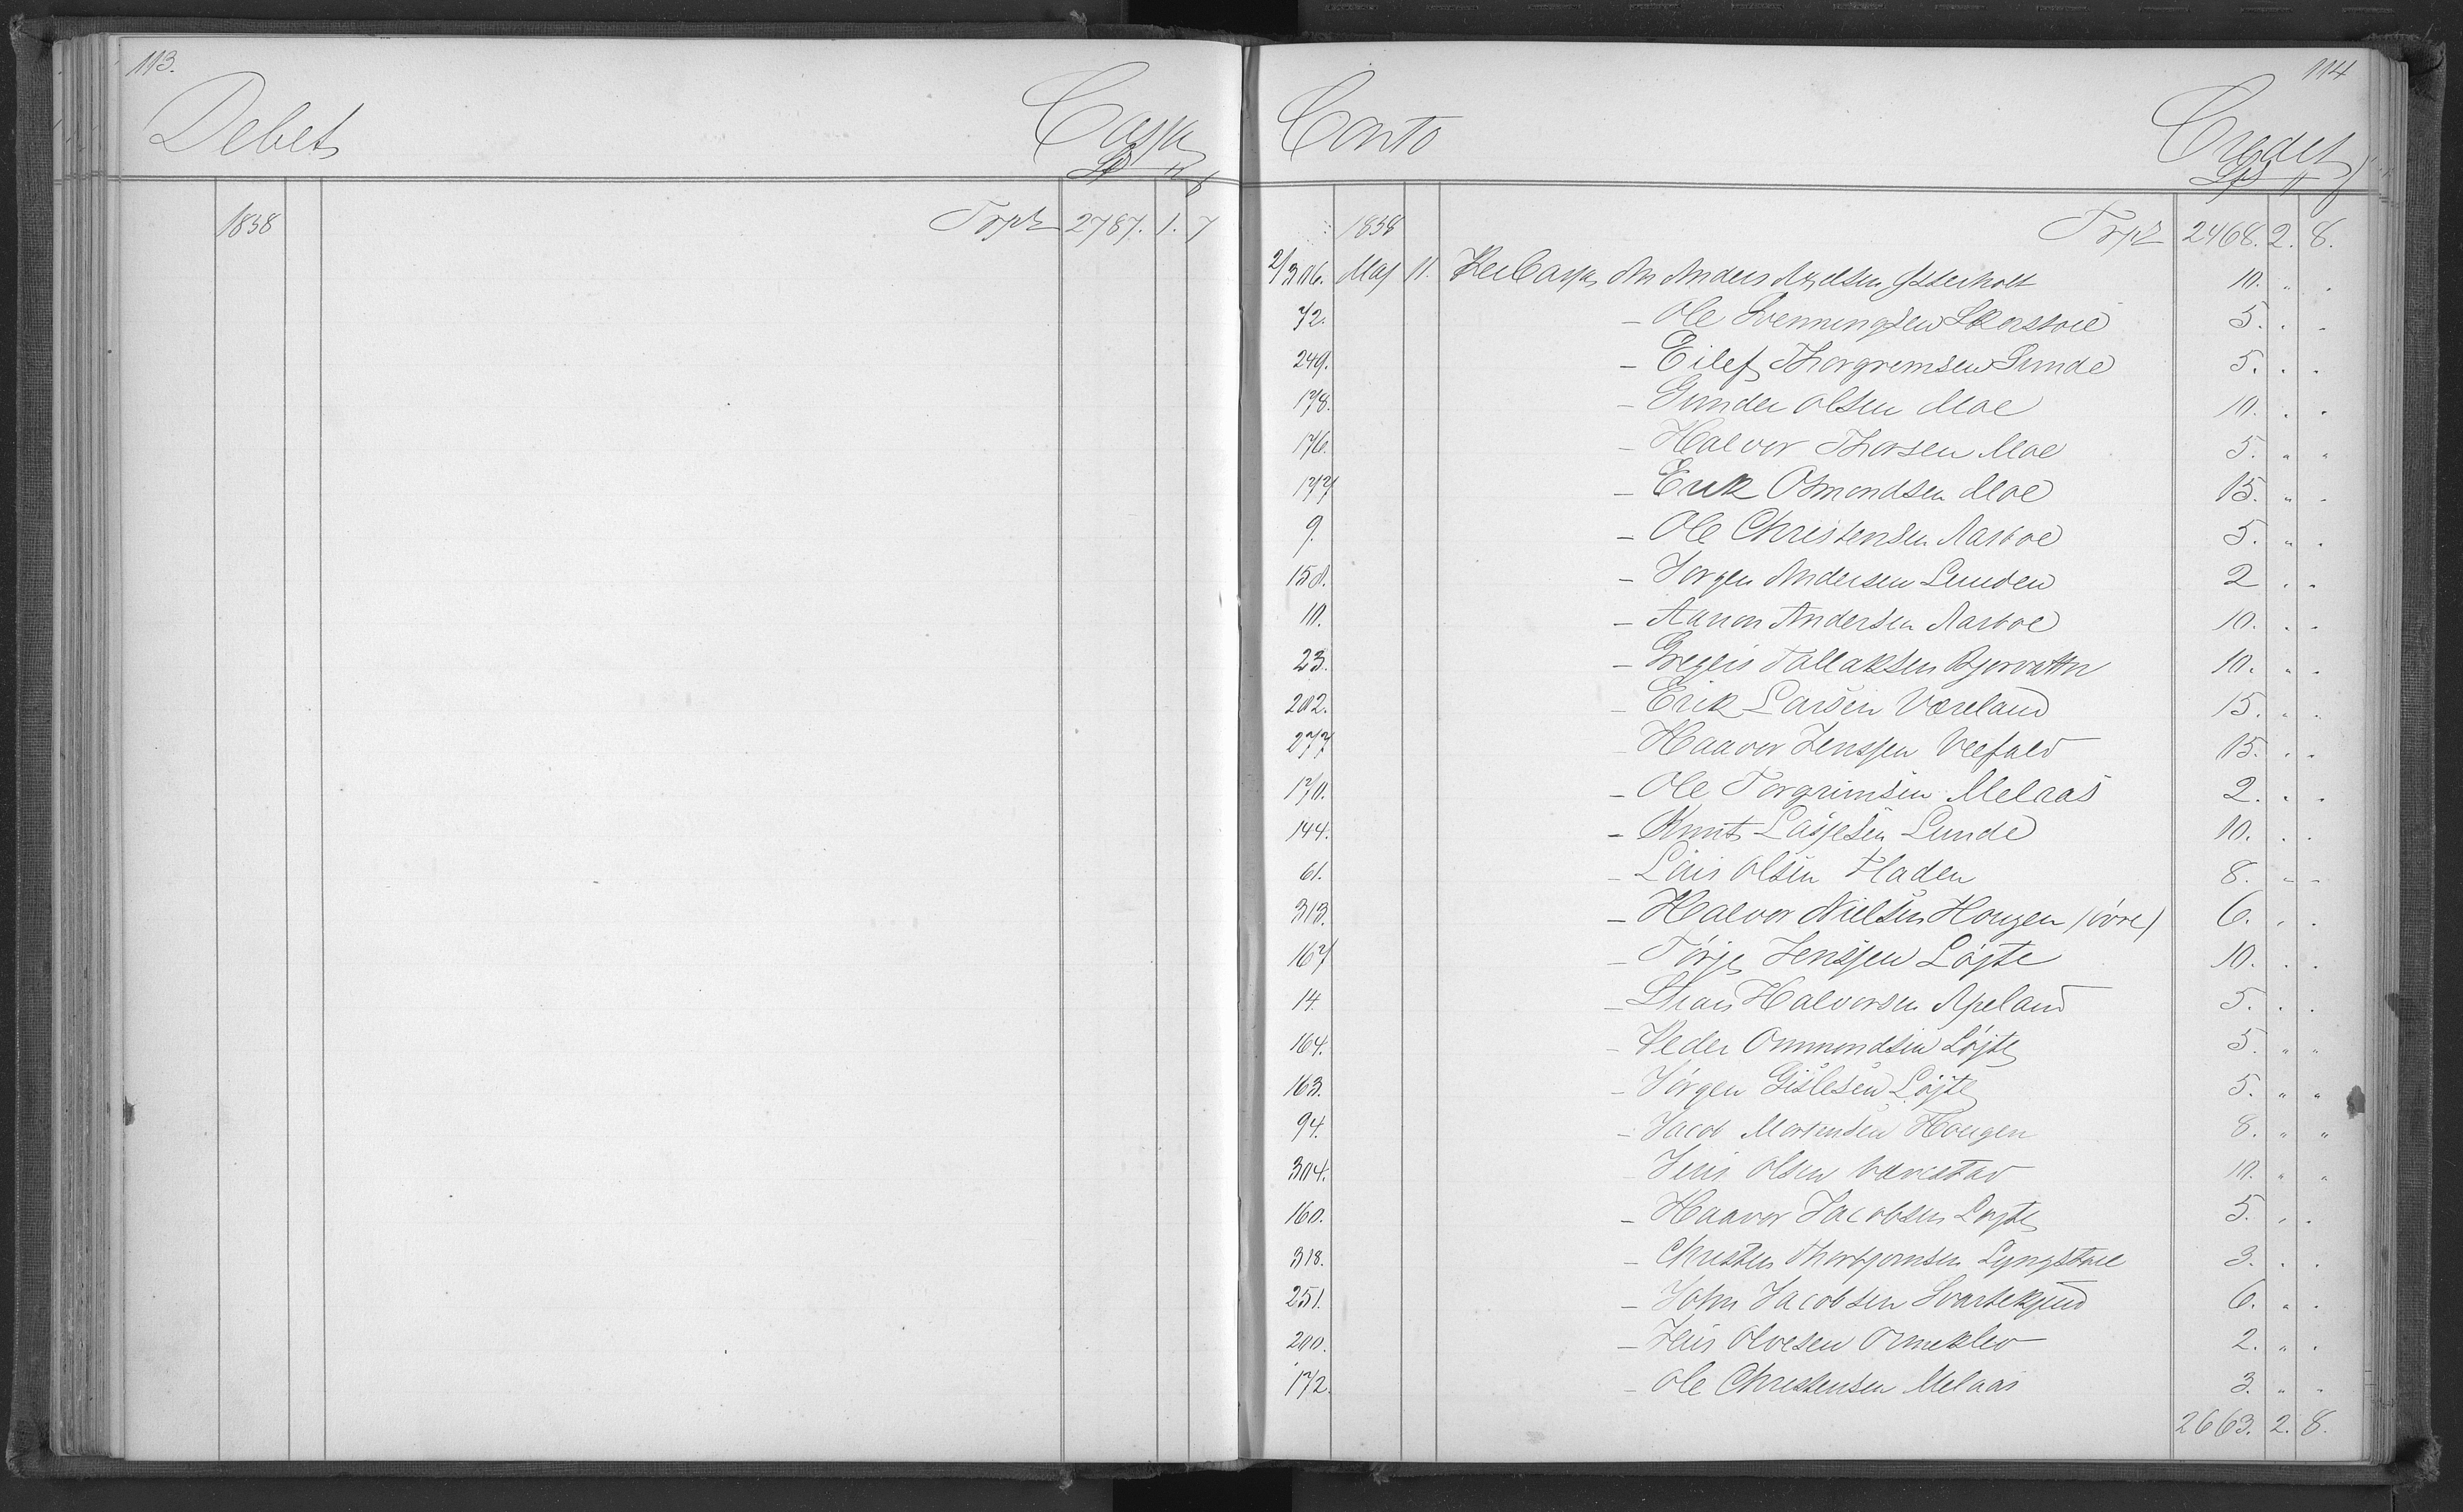 113.
Debet Cassa
1838 Trpt 2787. 1. 7
114
Conto Credit
1838 Trpt 2468. 2. 8.
2/306. Maj 11. Per Cassa An Anders Ytterholt 10. " "
72. - Ole Svenningsen 5. " "
249. - Eilef Thorgremsen Sunde 5. " "
178. - Gunder Olsen Moe 10. " "
176. - Halvor Thorsen Moe 5. " "
177 - Erik Osmondsen Moe 15. " "
9. - Ole Christensen Aasboe 5. " "
150. - Jorgen Andersen Lunden 2 " "
10. - Aanon Andersen Aasboe 10. " "
23. - Gregers Tallaksen Bjorvattn 10. " "
202. - Erik Larsen Væreland 15. " "
277 - Haavor Jenssen Veefald 15. " "
170. - Ole Torgrimsen Melaas 2. " "
144. - Knut Lassesen Lunde 10. " "
61. - Lars Olsen Fladen 8. " "
313. - Halvor Nielsen Hougen (övre) 6. " "
167 - Törje Jenssen Löjte 10. " "
14. - Halvorsen Apeland 5. " "
164. - Peder Ommundsen Löjte 5. " "
163. - Jörgen Gislesen Löjte 5. " "
94. - Jacob Mortensen Hougen 8. " "
304. - Jens Olsen Varestad 10. " "
160. - Haavor Jacobsen Lojte 5. " "
318. - Christen Thorbjornsen Lyngstoel 3. " "
251. - John Jacobsen 6. " "
200. - Jens Olvesen Ormeklev 2. " "
172. - Ole Christensen Melaas 3. " "
2663. 2. 8.